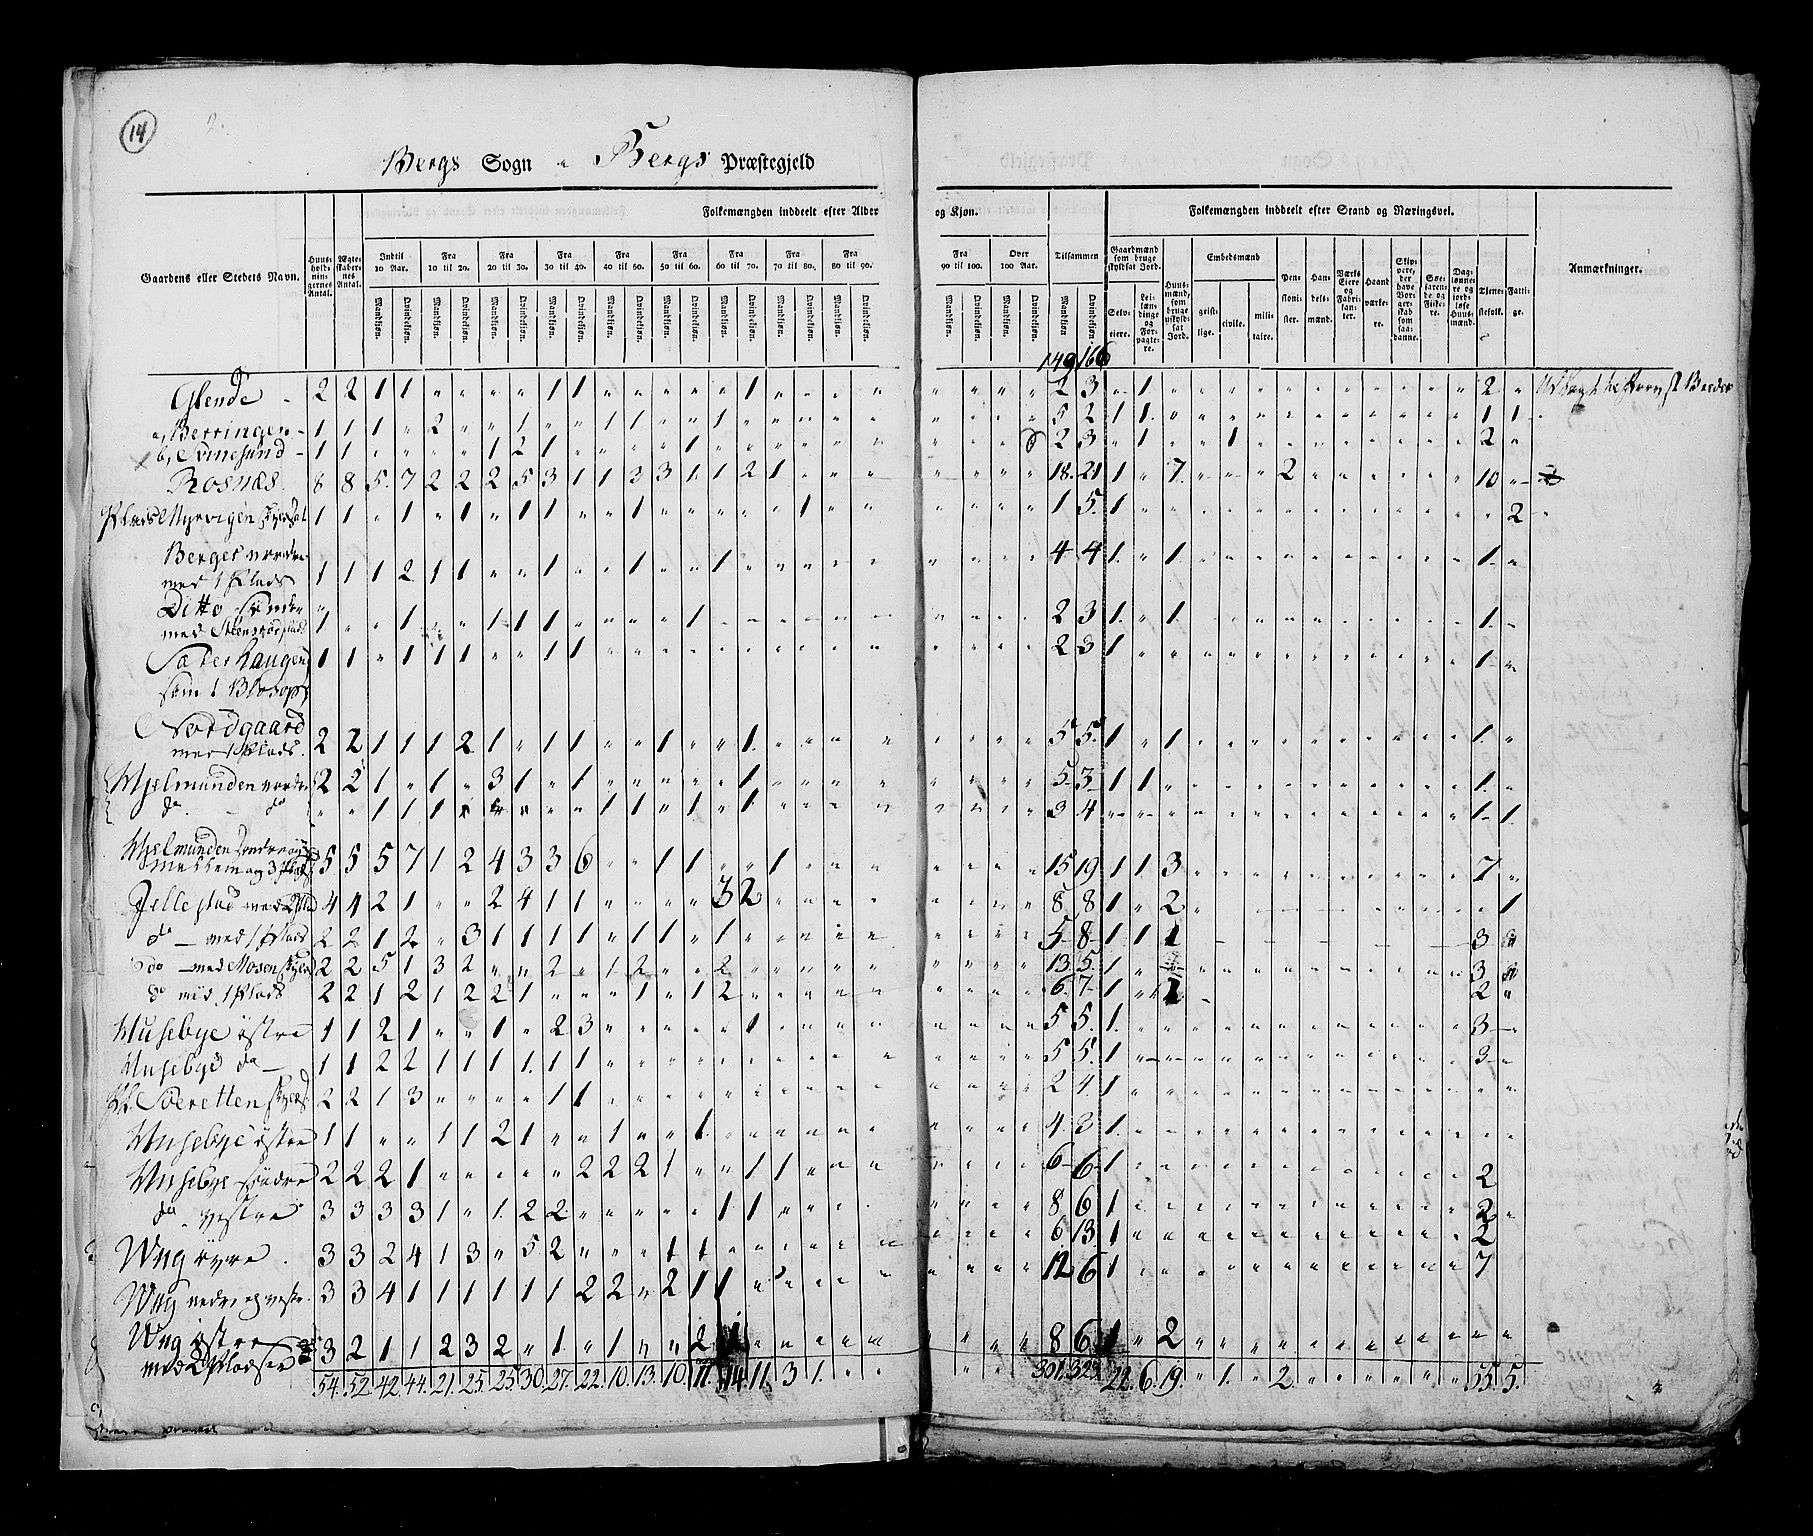 14
Bergs Sogn Bergs Præstegjeld
Folkemængden inddeelt efter Alder og Kjøn.
Folkemængden inddeelt efter Stand og Næringsvei.
Gaardens eller Stedets Navn.
Huusholdningernes Antal.
Ægteskabernes Antal.
Indtil 10 Aar.
Fra 10 til 20.
Fra 20 til 30.
Fra 30 til 40.
Fra 40 til 50.
Fra 50 til 60.
Fra 60 til 70.
Fra 70 til 80.
Fra 80 til 90.
Fra 90 til 100.
Over 100 Aar.
Tilsammen
Mandkjøn. Qvindekjøn.
Gaardmænd som bruge skyldsat Jord.
Selveiere.
Leilændinge og Forpagtere.
Huusmænd, som bruge uskyldsat Jord.
Embedsmænd
geistlige. civile. militaire.
Pensionister.
Handelsmænd.
Værks Eiere og Fabrikanter.
Haandværkere.
Skippere, der have Borgerskab som saadanne.
Søefarende og Fiskere.
Daglønnere og jordløse Huusmænd.
Tjenestefolk.
Fattige.
Anmærkninger.
149 166
Glende 2 2 1 1 " " " " " 1 1 " " " " " 1 " " " " 2 3 " 1 2
a, Berringen 1 1 1 " 2 " " 1 " " 1 1 " 1 5 2 1 1 1 1
b, Svinesund 1 1 " " " " 1 2 1 " " " " 1 2 3 " 1 1 2
Rosnæs 8 8 5 7 2 2 2 5 3 1 1 3 3 1 1 2 1 18 21 1 " 7 2 10
Plads Myrvigen 1 1 " 1 " 1 " 1 1 " " 1 " " " " " 1 1 5 1 2
Berger nordre med 1 Plads 1 1 1 2 1 1 " " 1 " " 1 " " 1 4 4 1 " 1 1
Ditto søndre med 1 " " 1 " " 1 1 1 " " " " 1 2 3 1 " 1 1
Sæterhaugen 1 1 " 1 1 1 " " 1 1 2 3 1 1
Nordgaard med 1 Plads 2 2 1 1 1 2 1 " 1 1 " " 1 " " 1 5 5 1 " 1 1
Hjelmunden nordre 2 2 1 " 1 " 3 1 " 1 " " " " " 1 5 3 1 1 1
do. do " " 1 1 1 1 1 " 1 " 1 3 4 1 1
Hjelmunden 5 5 5 7 1 2 4 3 3 6 " " 1 1 " " 1 15 19 1 1 3 7
Jellestad med 4 4 2 1 " " 2 4 1 1 " " " " 3 2 8 8 1 " 2 1
do — med 1 Plads 2 2 1 2 " 3 1 1 1 1 " 1 1 " 1 5 8 1 1 1 3
do — med Mosen 2 2 5 1 3 2 " " 2 " 1 2 " " 2 13 5 1 3
do med 1 Plads 2 2 1 2 1 2 2 1 " " " 1 " 1 2 6 7 1 1 2
Husebye østre 1 1 2 1 " " 1 " 2 3 " " " " " 1 5 5 1 3
Husebye do — 1 1 2 2 1 1 1 1 1 1 5 5 1 3
Pl. Sveretten 2 2 1 3 " " " " 1 1 2 4 1
Husebye østre 1 1 " " 1 1 2 1 " " 1 " " 1 4 3 1
Husebye søndre 2 2 2 1 " " " " " 2 2 2 1 " " 1 1 6 6 1 2
do vestre 3 3 3 3 1 " 1 2 2 " " " " " 1 1 8 6 1 2
Ung øvre 3 3 2 4 1 3 " 5 2 " " " 1 1 6 13 1 2
Ung nedre og vestre 3 3 4 1 1 1 1 1 1 2 2 " 2 1 1 12 6 1 7
Ung østre med 2 Pladser 3 2 1 1 2 3 2 " 1 " 1 " " 2 8 6 1 " 2
54. 52 42. 44. 21. 25. 25. 30. 27. 22. 10. 13. 10. 11. 14. 11. 3 1. 301. 323. 22. 6. 19. " 1. " 2. 55. 5.